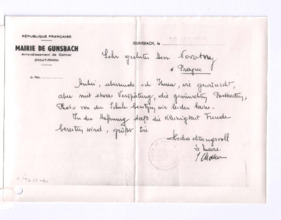 RÉPUBLIQUE FRANÇAISE
MAIRIE DE GUNSBACH
Arrondissement de Colmar
(HAUT-RHIN)
GUNSBACH,
Sehr geehrter Herr Novotny
Prague
Anbei, übersende ich Ihnen, wie gewünscht,
aber mit etwas Verspätung, die gewünschten
Photo von der Schule besitzen wir leider keine.
In der Hoffnung daß die Kleinigkeit Freude
bereiten wird, grüßt Sie
Hochachtungsvoll
le Maire